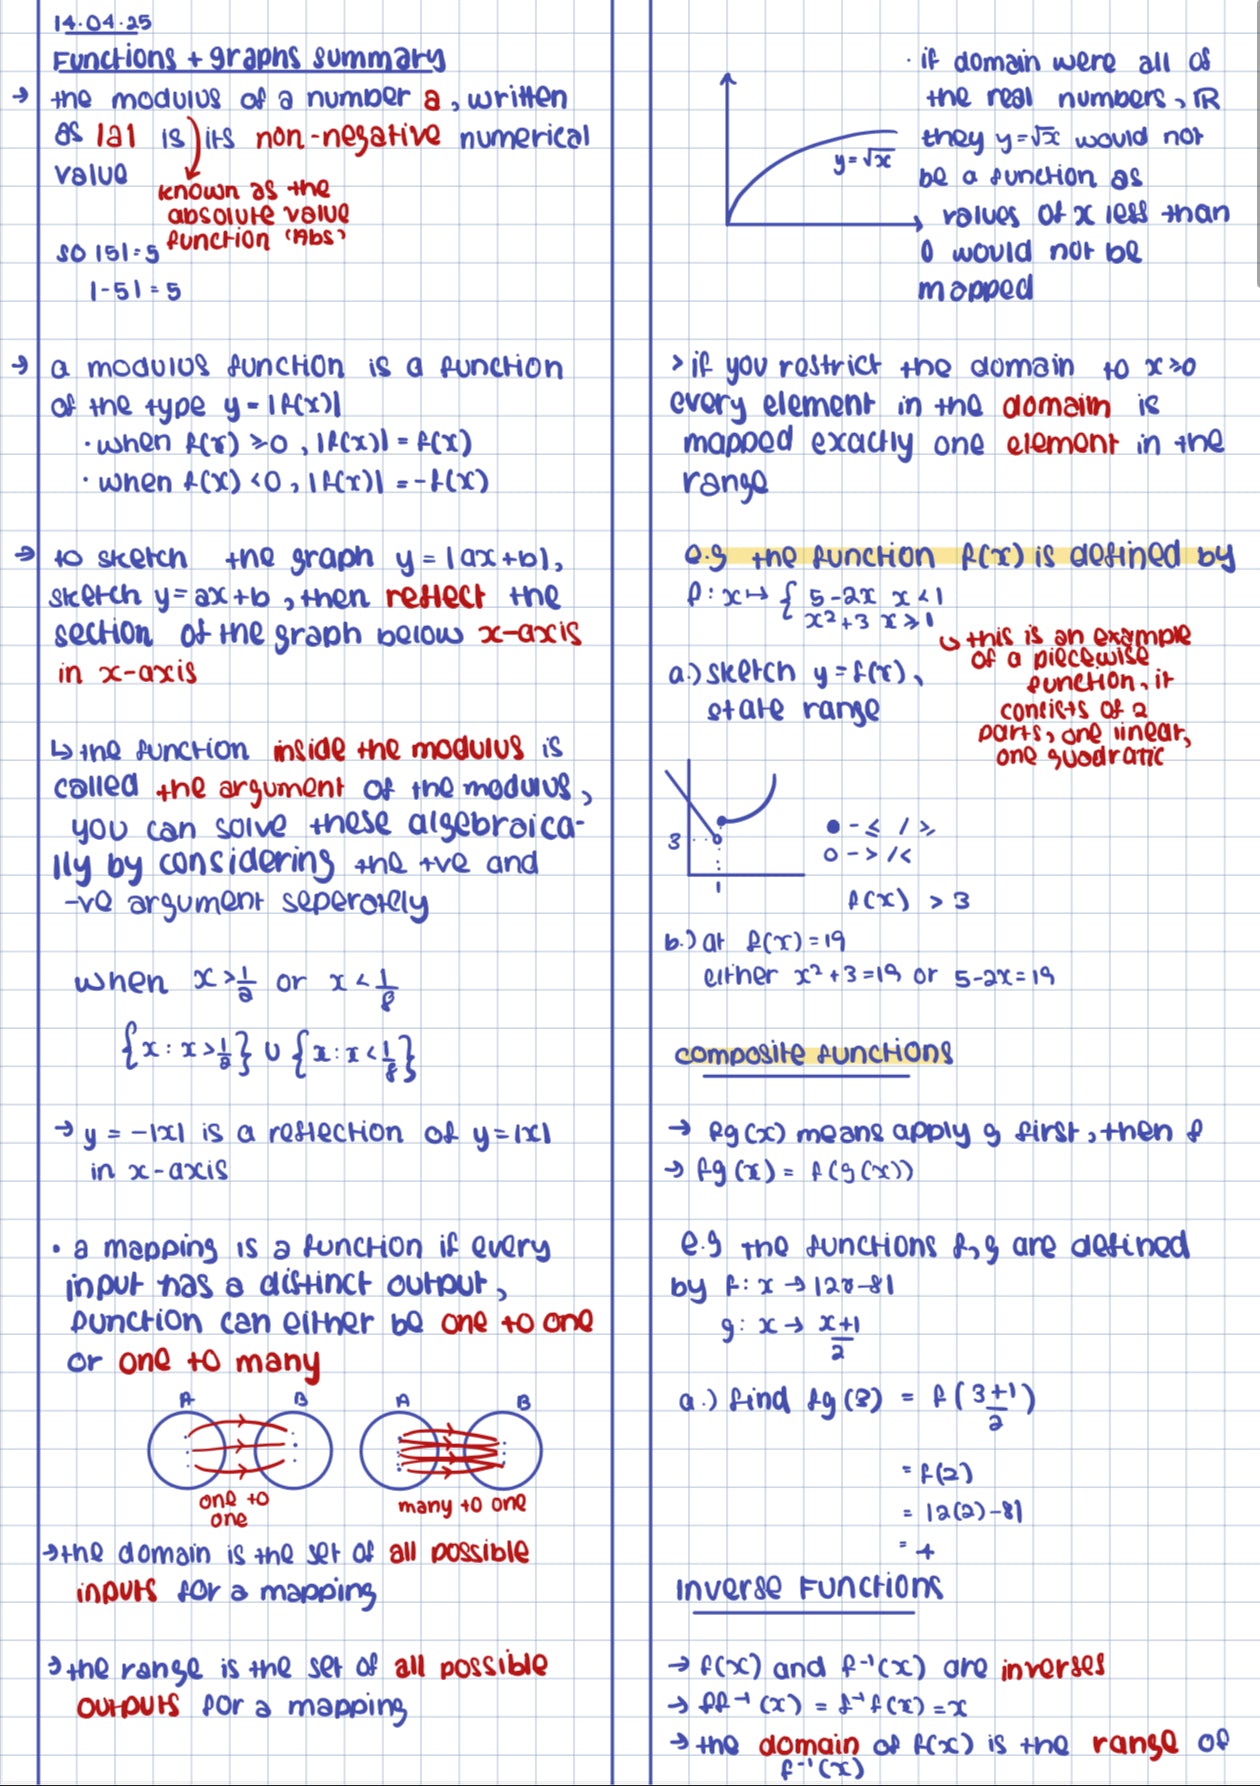 14.04.25
Functions + graphs summary
→ the modulus of a number a, written
as |a| is its non-negative numerical
value
known as the
absolute value
function (Abs)
so |5| = 5
|-5| = 5
→ a modulus function is a function
of the type y = |f(x)|
· when f(x) ≥ 0, |f(x)| = f(x)
· when f(x) < 0, |f(x)| = -f(x)
→ to sketch the graph y = |ax+b|,
sketch y = ax+b, then reflect the
section of the graph below x-axis
in x-axis
↳ the function inside the modulus is
called the argument of the modulus,
you can solve these algebraica-
lly by considering the +ve and
-ve argument seperately
when x > 1/2 or x < 1/8
{x : x > 1/2} ∪ {x : x < 1/8}
→ y = -|x| is a reflection of y = |x|
in x-axis
· a mapping is a function if every
input has a distinct output,
function can either be one to one
or one to many
A B A B
one to
one
many to one
→ the domain is the set of all possible
inputs for a mapping
→ the range is the set of all possible
outputs for a mapping
y = √x
· if domain were all of
the real numbers, ℝ
they y = √x would not
be a function as
values of x less than
0 would not be
mapped
> if you restrict the domain to x ≥ 0
every element in the domain is
mapped exactly one element in the
range
e.g the function f(x) is defined by
f : x ↦ { 5 - 2x x < 1
x² + 3 x ≥ 1
↳ this is an example
of a piecewise
function, it
consists of 2
parts, one linear,
one quadratic
a.) sketch y = f(x),
state range
3
1
● - ≤ / ≥
○ - > / <
f(x) > 3
b.) at f(x) = 19
either x² + 3 = 19 or 5 - 2x = 19
composite functions
→ fg(x) means apply g first, then f
→ fg(x) = f(g(x))
e.g the functions f, g are defined
by f : x → |2x - 8|
g : x → x+1/2
a.) find fg(3) = f(3+1/2)
= f(2)
= |2(2) - 8|
= 4
Inverse Functions
→ f(x) and f⁻¹(x) are inverses
→ ff⁻¹(x) = f⁻¹f(x) = x
→ the domain of f(x) is the range of
f⁻¹(x)